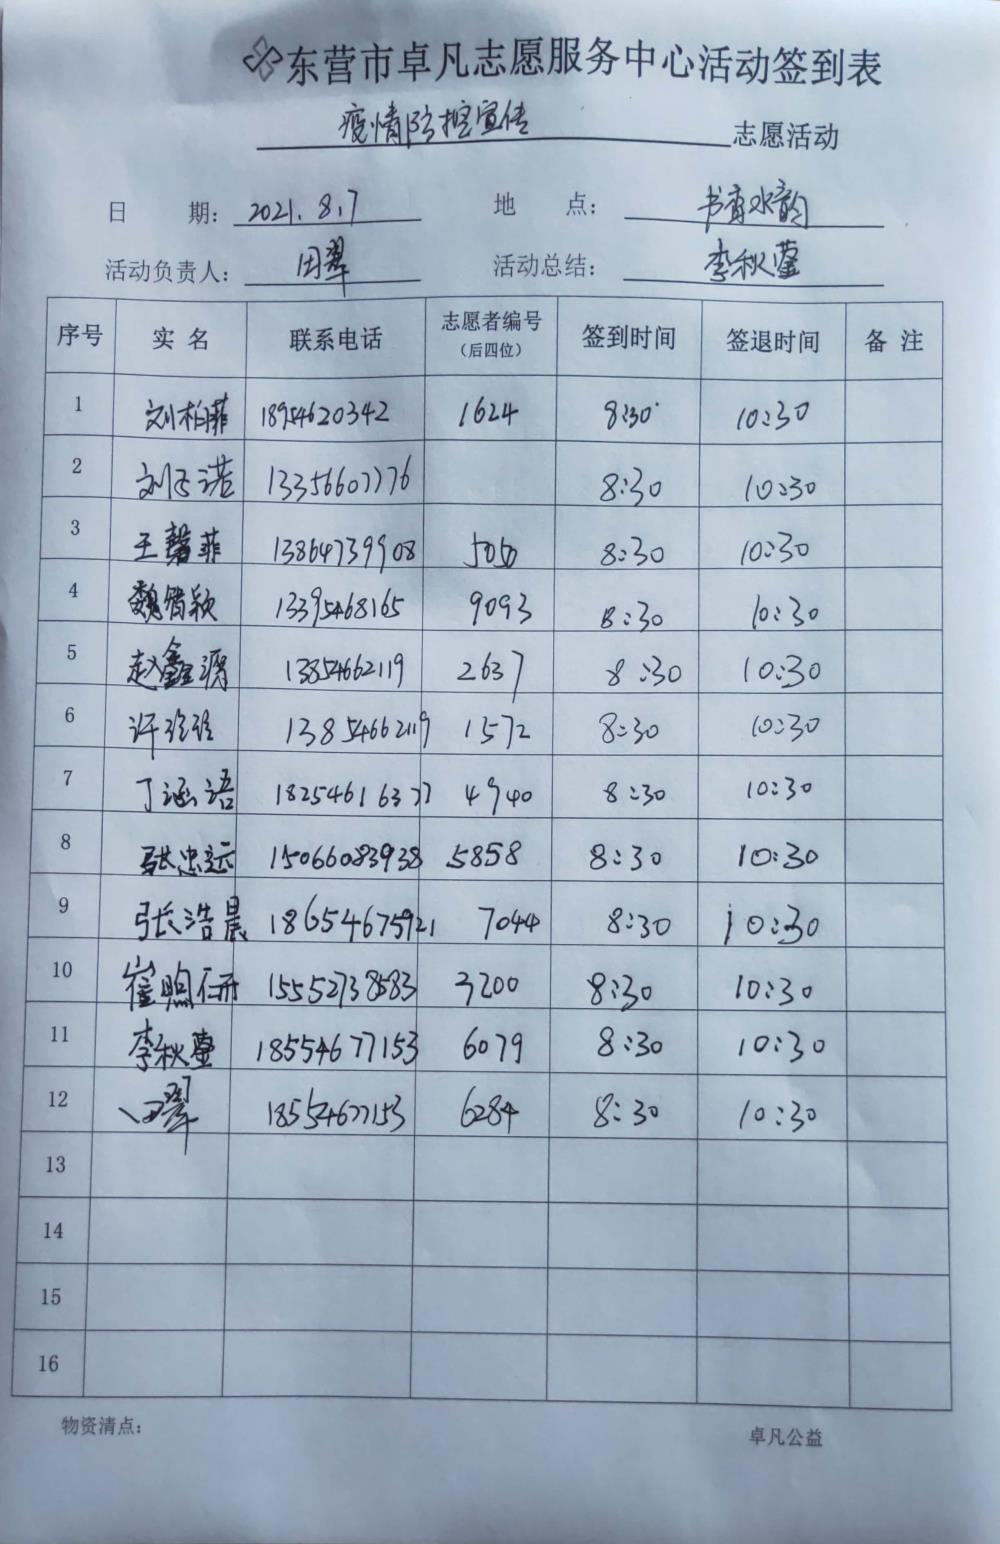 东营市卓凡志愿服务中心活动签到表
疫情防控宣传 志愿活动
日 期: 2021.8.7 地 点: 书香水韵
活动负责人: 田翠 活动总结: 李秋莹
序号 实名 联系电话 志愿者编号(后四位) 签到时间 签退时间 备注
1 刘柏菲 18954620342 1624 8:30 10:30
2 刘子诺 13356607776 8:30 10:30
3 王馨菲 13864739908 5050 8:30 10:30
4 魏智颖 13395468165 9093 8:30 10:30
5 赵鑫源 13854662119 2637 8:30 10:30
6 许珍珍 13854662119 1572 8:30 10:30
7 丁涵语 18254616377 4940 8:30 10:30
8 张忠远 15066083938 5858 8:30 10:30
9 张浩晨 18654675921 7044 8:30 10:30
10 崔煦研 15552738583 3200 8:30 10:30
11 李秋莹 18554677153 6079 8:30 10:30
12 田翠 18554677153 6284 8:30 10:30
13
14
15
16
物资清点: 卓凡公益